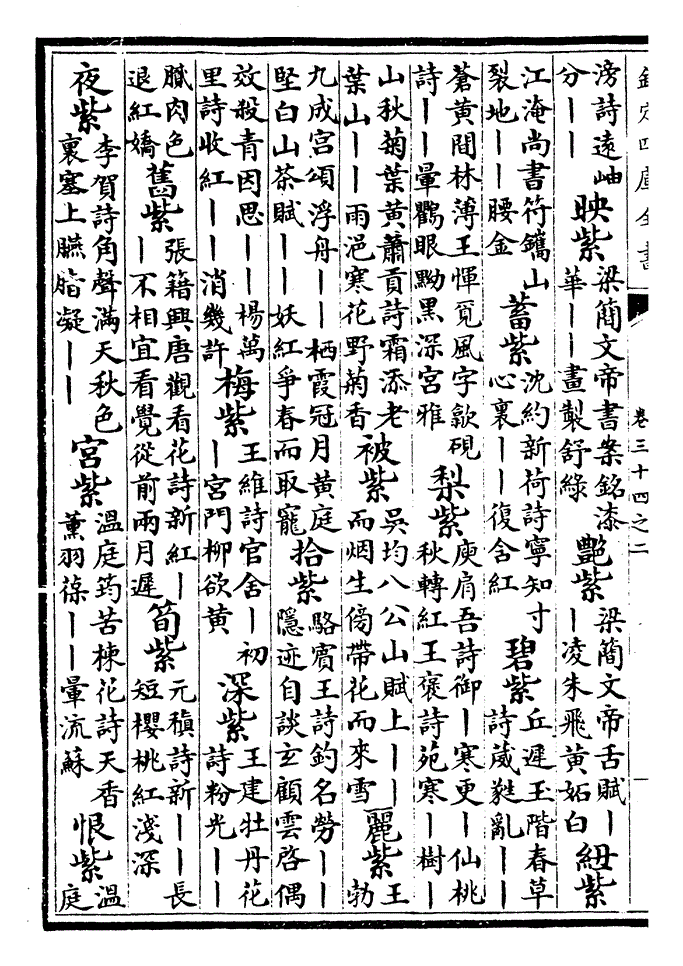 欽定四庫全書
卷三十四之二
滂詩遠岫
分丨丨
映紫
梁簡文帝書案銘漆
華丨丨畫製舒綠
艷紫
梁簡文帝舌賦丨
丨凌朱飛黃妬白
紐紫
江淹尚書符鑴山
裂地丨丨腰金
蓄紫
沈約新荷詩寧知寸
心裏丨丨復含紅
碧紫
丘遲玉階春草
詩葳蕤亂丨丨
蒼黃閒林薄王惲覓風字歙硯
詩丨丨暈鸜眼黝黑深宮雅
梨紫
庾肩吾詩御丨寒更丨仙桃
秋轉紅王褒詩苑寒丨樹丨
山秋菊葉黃蕭貢詩霜添老
葉山丨丨雨浥寒花野菊香
被紫
吳均八公山賦上丨丨
而烟生傍帶花而來雪
麗紫
王
勃
九成宮頌浮舟丨丨栖霞冠月黃庭
堅白山茶賦丨丨妖紅爭春而取寵
拾紫
駱賓王詩釣名勞丨丨
隱迹自談玄顧雲啓偶
效殺青因思丨丨楊萬
里詩收紅丨丨消幾許
梅紫
王維詩官舍丨初
丨宮門柳欲黃
深紫
王建牡丹花
詩粉光丨丨
膩肉色
退紅嬌
舊紫
張籍興唐觀看花詩新紅丨
丨不相宜看覺從前兩月遲
筍紫
元稹詩新丨丨長
短櫻桃紅淺深
夜紫
李賀詩角聲滿天秋色
裏塞上臙脂凝丨丨
宮紫
溫庭筠苦楝花詩天香
薰羽葆丨丨暈流蘇
恨紫
溫
庭